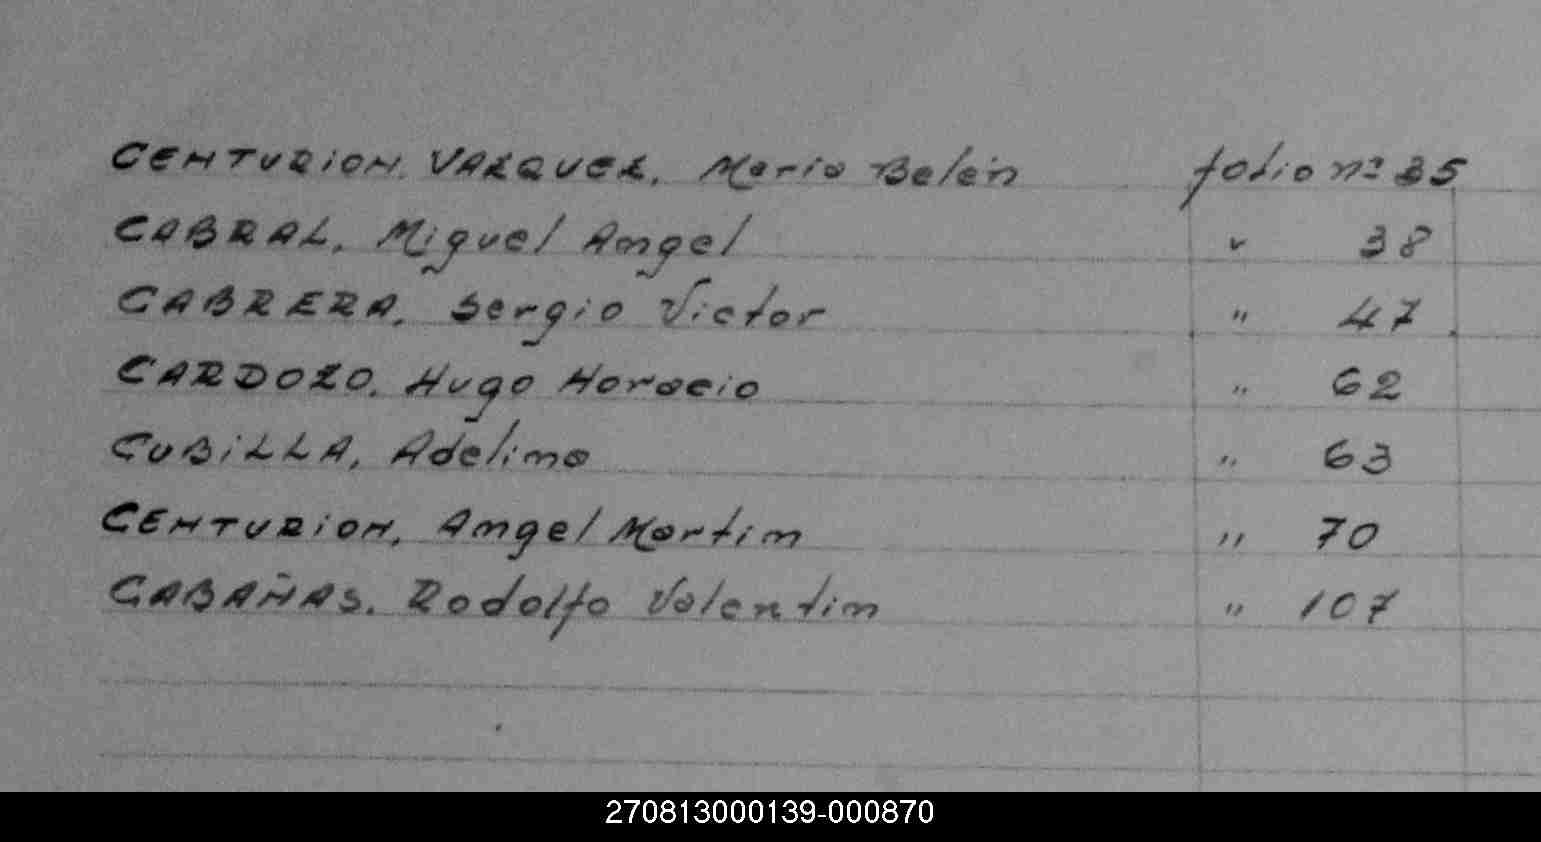 CENTURION VAZQUEZ, Maria Belén folio nº 35
CABRAL, Miguel Angel " 38
CABRERA, Sergio Victor " 47
CARDOZO, Hugo Horacio " 62
CUBiLLA, Adelina " 63
CENTURION, Angel Martin " 70
CABAÑAS, Rodolfo Valentin " 107
270813000139-000870